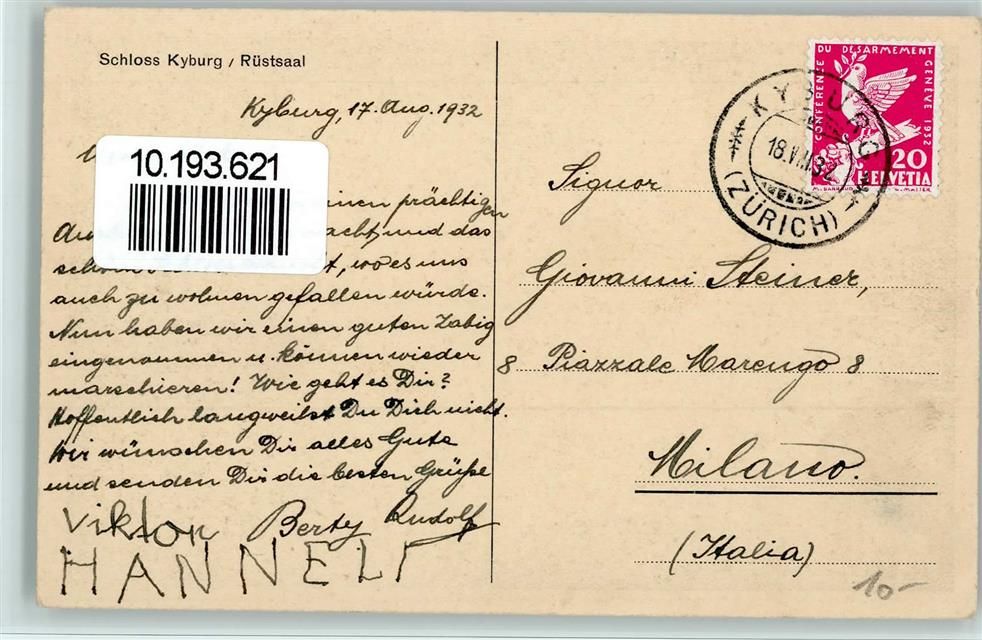 Schloss Kyburg / Rüstsaal
Kyburg, 17. Aug. 1932
10.193.621
prächtigen
und das
wo es uns
auch zu wohnen gefallen würde.
Nun haben wir einen guten Zabig
eingenommen u. können wieder
marschieren! Wie geht es Dir?
Hoffentlich langweilst Du Dich nicht.
Wir wünschen Dir alles Gute
und senden Dir die besten Grüße
Viktor Berty Rudolf
HANNELI
CONFERENCE DU DESARMEMENT GENÈVE 1932
20
HELVETIA
KYBURG
18.VIII.32
(ZÜRICH)
Signor
Giovanni Steiner,
8 Piazzale Marengo 8
Milano.
(Italia)
10-